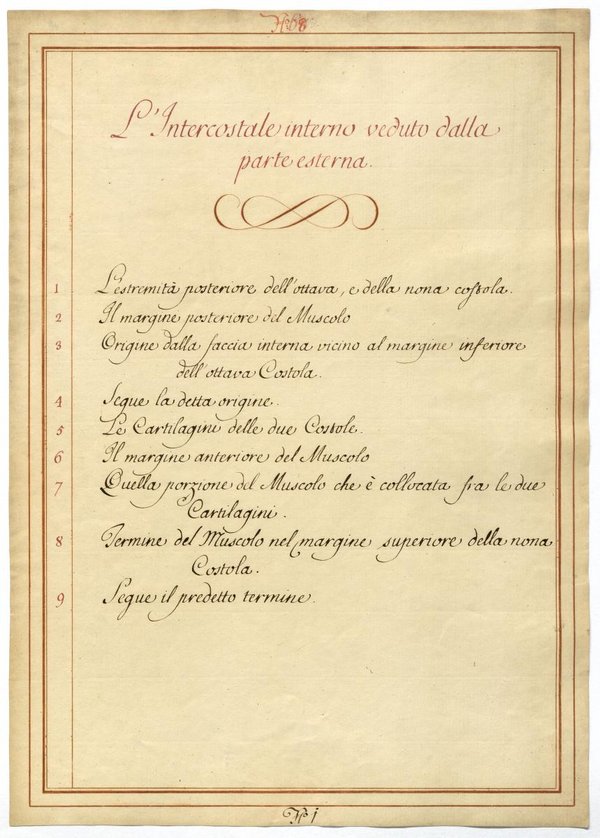 L'Intercostale interno veduto dalla
parte esterna.
1 L'estremità posteriore dell'ottava, e della nona costola.
2 Il margine posteriore del Muscolo
3 Origine dalla faccia interna vicino al margine inferiore
dell'ottava Costola.
4 Segue la detta origine.
5 Le Cartilagini delle due Costole.
6 Il margine anteriore del Muscolo
7 Quella porzione del Muscolo che è collocata fra le due
Cartilagini.
8 Termine del Muscolo nel margine superiore della nona
Costola.
9 Segue il predetto termine.